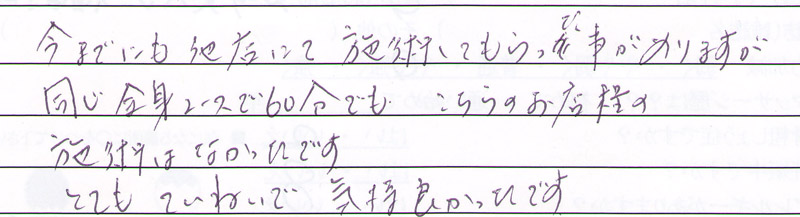 今までにも他店にて施術してもらった事がありますが
同じ全身コースで60分でもこちらのお店程の
施術はなかったです
とてもていねいで気持良かったです